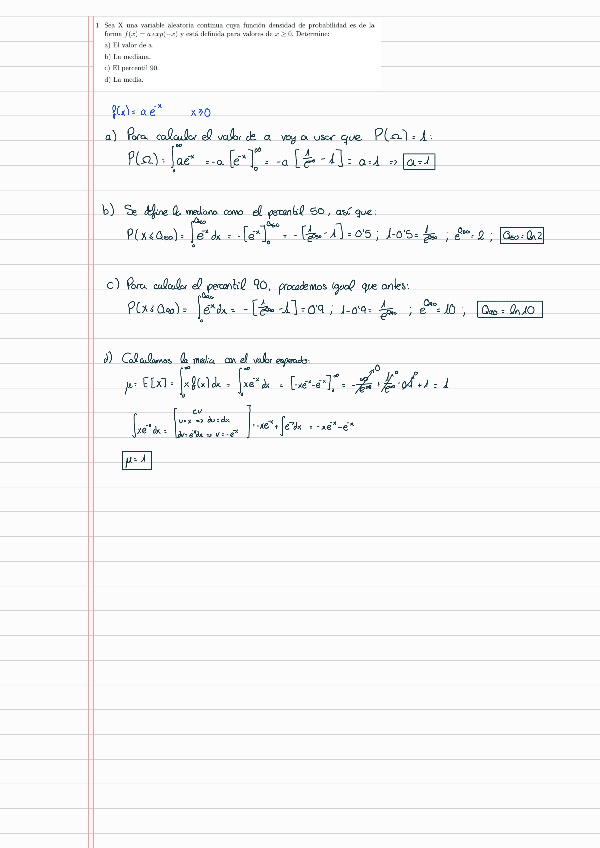 1 Sea X una variable aleatoria continua cuya función densidad de probabilidad es de la
forma f(x) = a exp(−x) y está definida para valores de x ≥ 0. Determine:
a) El valor de a.
b) La mediana.
c) El percentil 90.
d) La media.
f(x) = a e^-x    x≥0
a) Para calcular el valor de a voy a usar que P(Ω) = 1:
P(Ω) = ∫₀^∞ ae^-x = -a [e^-x]₀^∞ = -a [1/e^∞ - 1] = a = 1 => a=1
b) Se define la mediana como el percentil 50, así que:
P(X ≤ Q50) = ∫₀^Q50 e^-x dx = -[e^-x]₀^Q50 = -[1/e^Q50 - 1] = 0'5 ; 1-0'5 = 1/e^Q50 ; e^Q50 = 2 ; Q50 = ln 2
c) Para calcular el percentil 90, procedemos igual que antes:
P(X ≤ Q90) = ∫₀^Q90 e^-x dx = -[1/e^Q90 - 1] = 0'9 ; 1-0'9 = 1/e^Q90 ; e^Q90 = 10 ; Q90 = ln 10
d) Calculamos la media con el valor esperado:
μ = E[X] = ∫₀^∞ x f(x) dx = ∫₀^∞ xe^-x dx = [-xe^-x - e^-x]₀^∞ = -∞/e^∞ + 1/e^∞ + 1 = 1
∫xe^-x dx = [u=x => du=dx
dv=e^-x dx => v=-e^-x] = -xe^-x + ∫e^-x dx = -xe^-x - e^-x
μ = 1